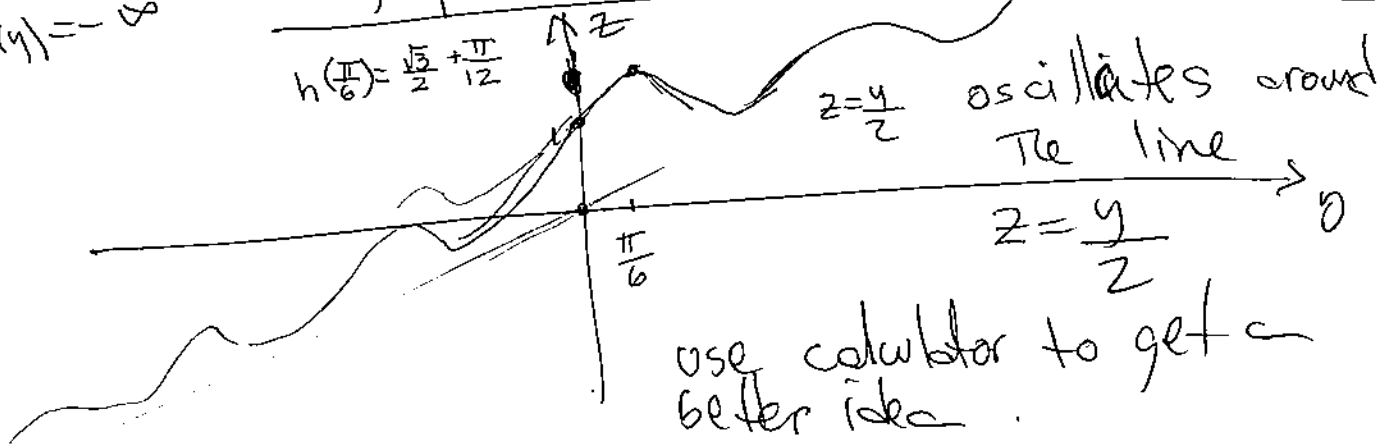 (y) = - ∞
z
h(π/6) = √3/2 + π/12
z = y/2 oscillates around
The line
1
π/6
z = y/2
y
use calculator to get a
better idea.